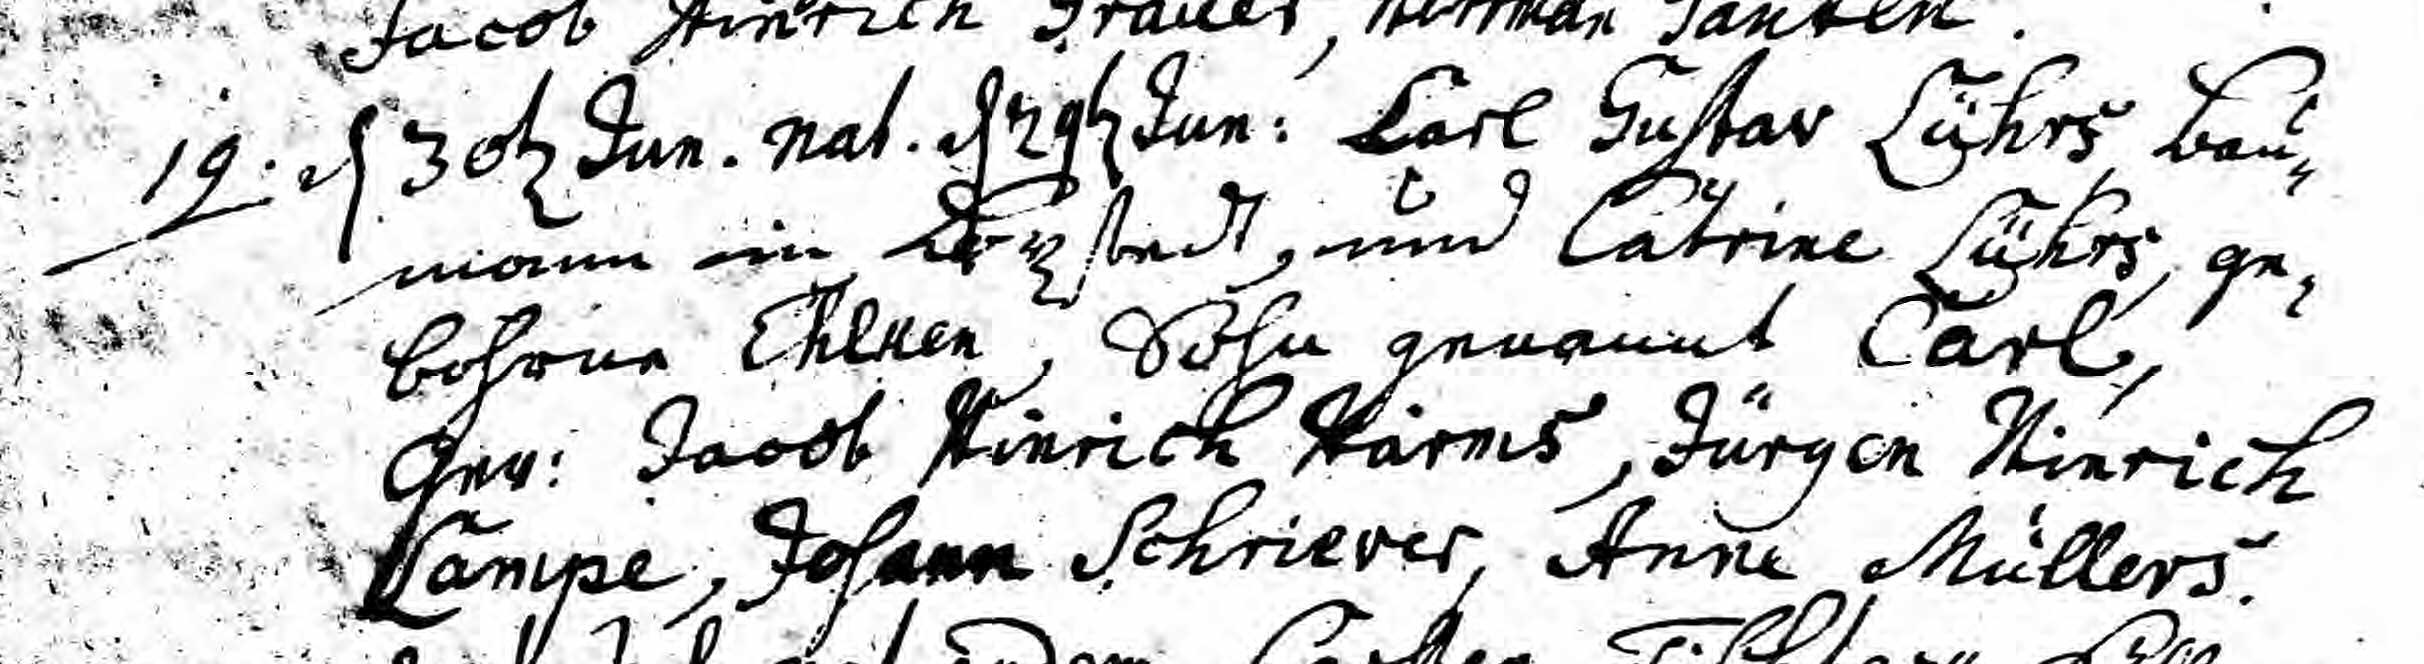 Jacob Hinrich Brauer, Herrman Janßen.
19. d 30t Jun. nat. d 29t Jun: Carl Gustav Lührs, Bau-
mann in und Catrine Lührs, ge-
bohrne Ehlken, Sohn genannt Carl,
Gev: Jacob Hinrich Harms, Jürgen Hinrich
Lampe, Johann Schriever, Anne Müllers.